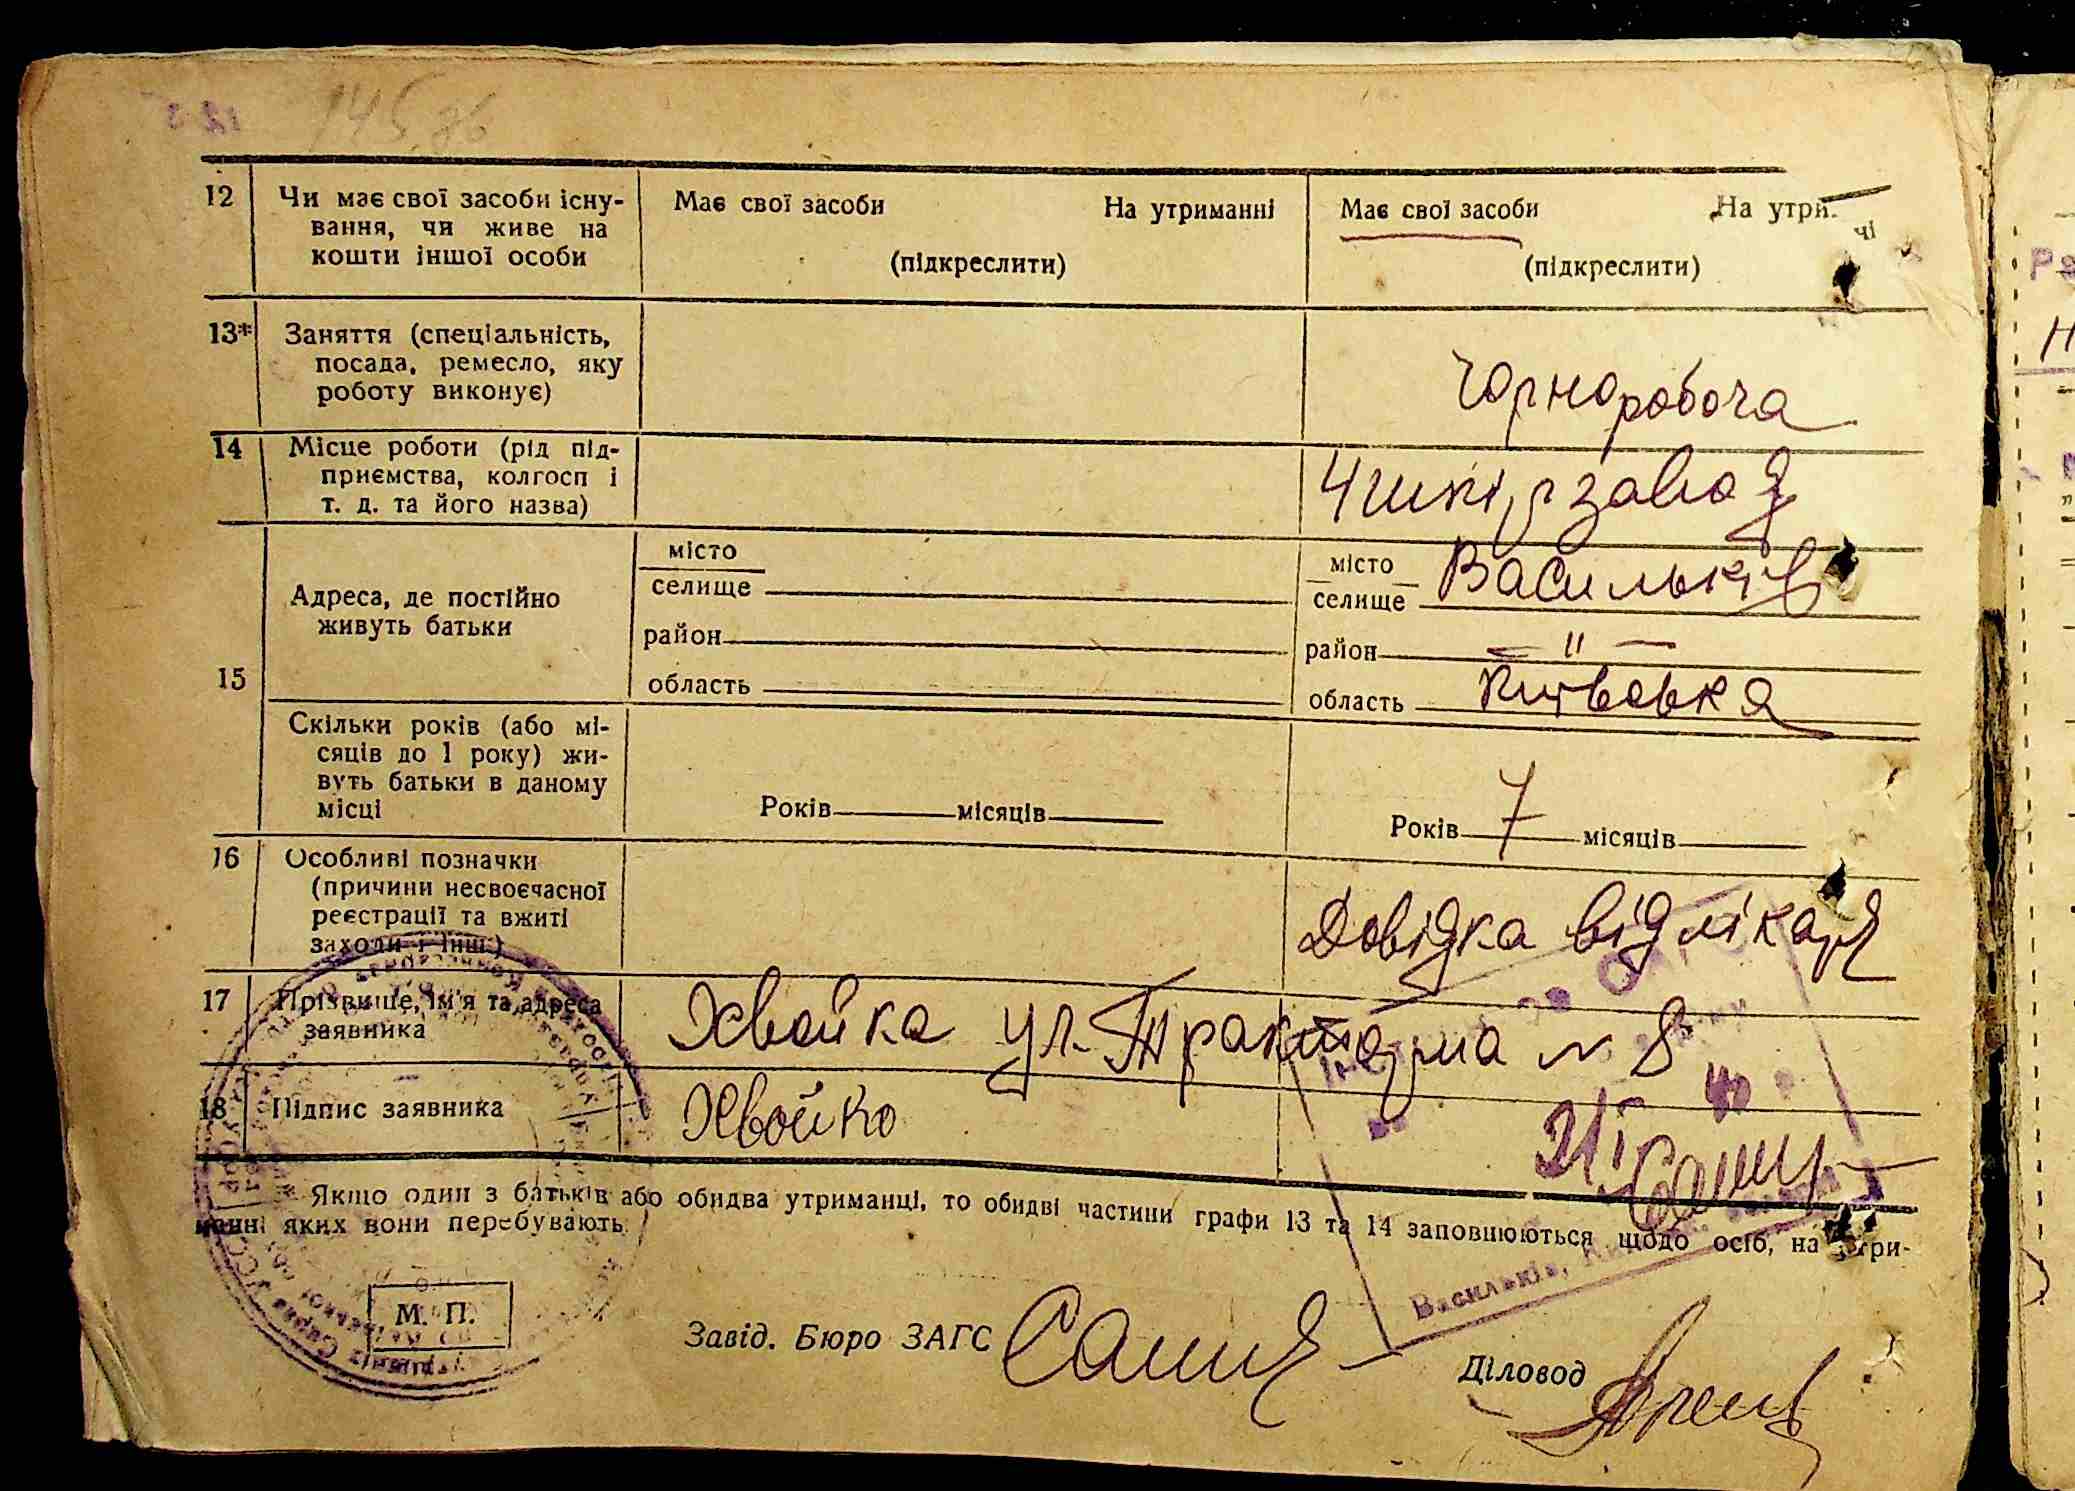 145
12 Чи має свої засоби існу- Має свої засоби На утриманні Має свої засоби На утри.
вання, чи живе на чі
кошти іншої особи (підкреслити) (підкреслити)
13* Заняття (спеціальність,
посада, ремесло, яку Чорноробоча
роботу виконує)
14 Місце роботи (рід під- завод
приємства, колгосп і
т. д. та його назва)
місто місто Васильків
селище селище
Адреса, де постійно
живуть батьки
район район — " —
15 область область Київська
Скільки років (або мі-
сяців до 1 року) жи-
вуть батьки в даному
місці Років місяців Років 7 місяців
16 Особливі позначки
(причини несвоєчасної
реєстрації та вжиті Довідка від лікаря
заходи і інш.)
17 Прізвище, ім'я та адреса Хвойка ул. Тракторна № 8
заявника
18 Підпис заявника Хвойко
Якщо один з батьків або обидва утриманці, то обидві частини графи 13 та 14 заповнюються щодо осіб, на утри-
манні яких вони перебувають.
Васильків,
М. П.
Завід. Бюро ЗАГС
Діловод